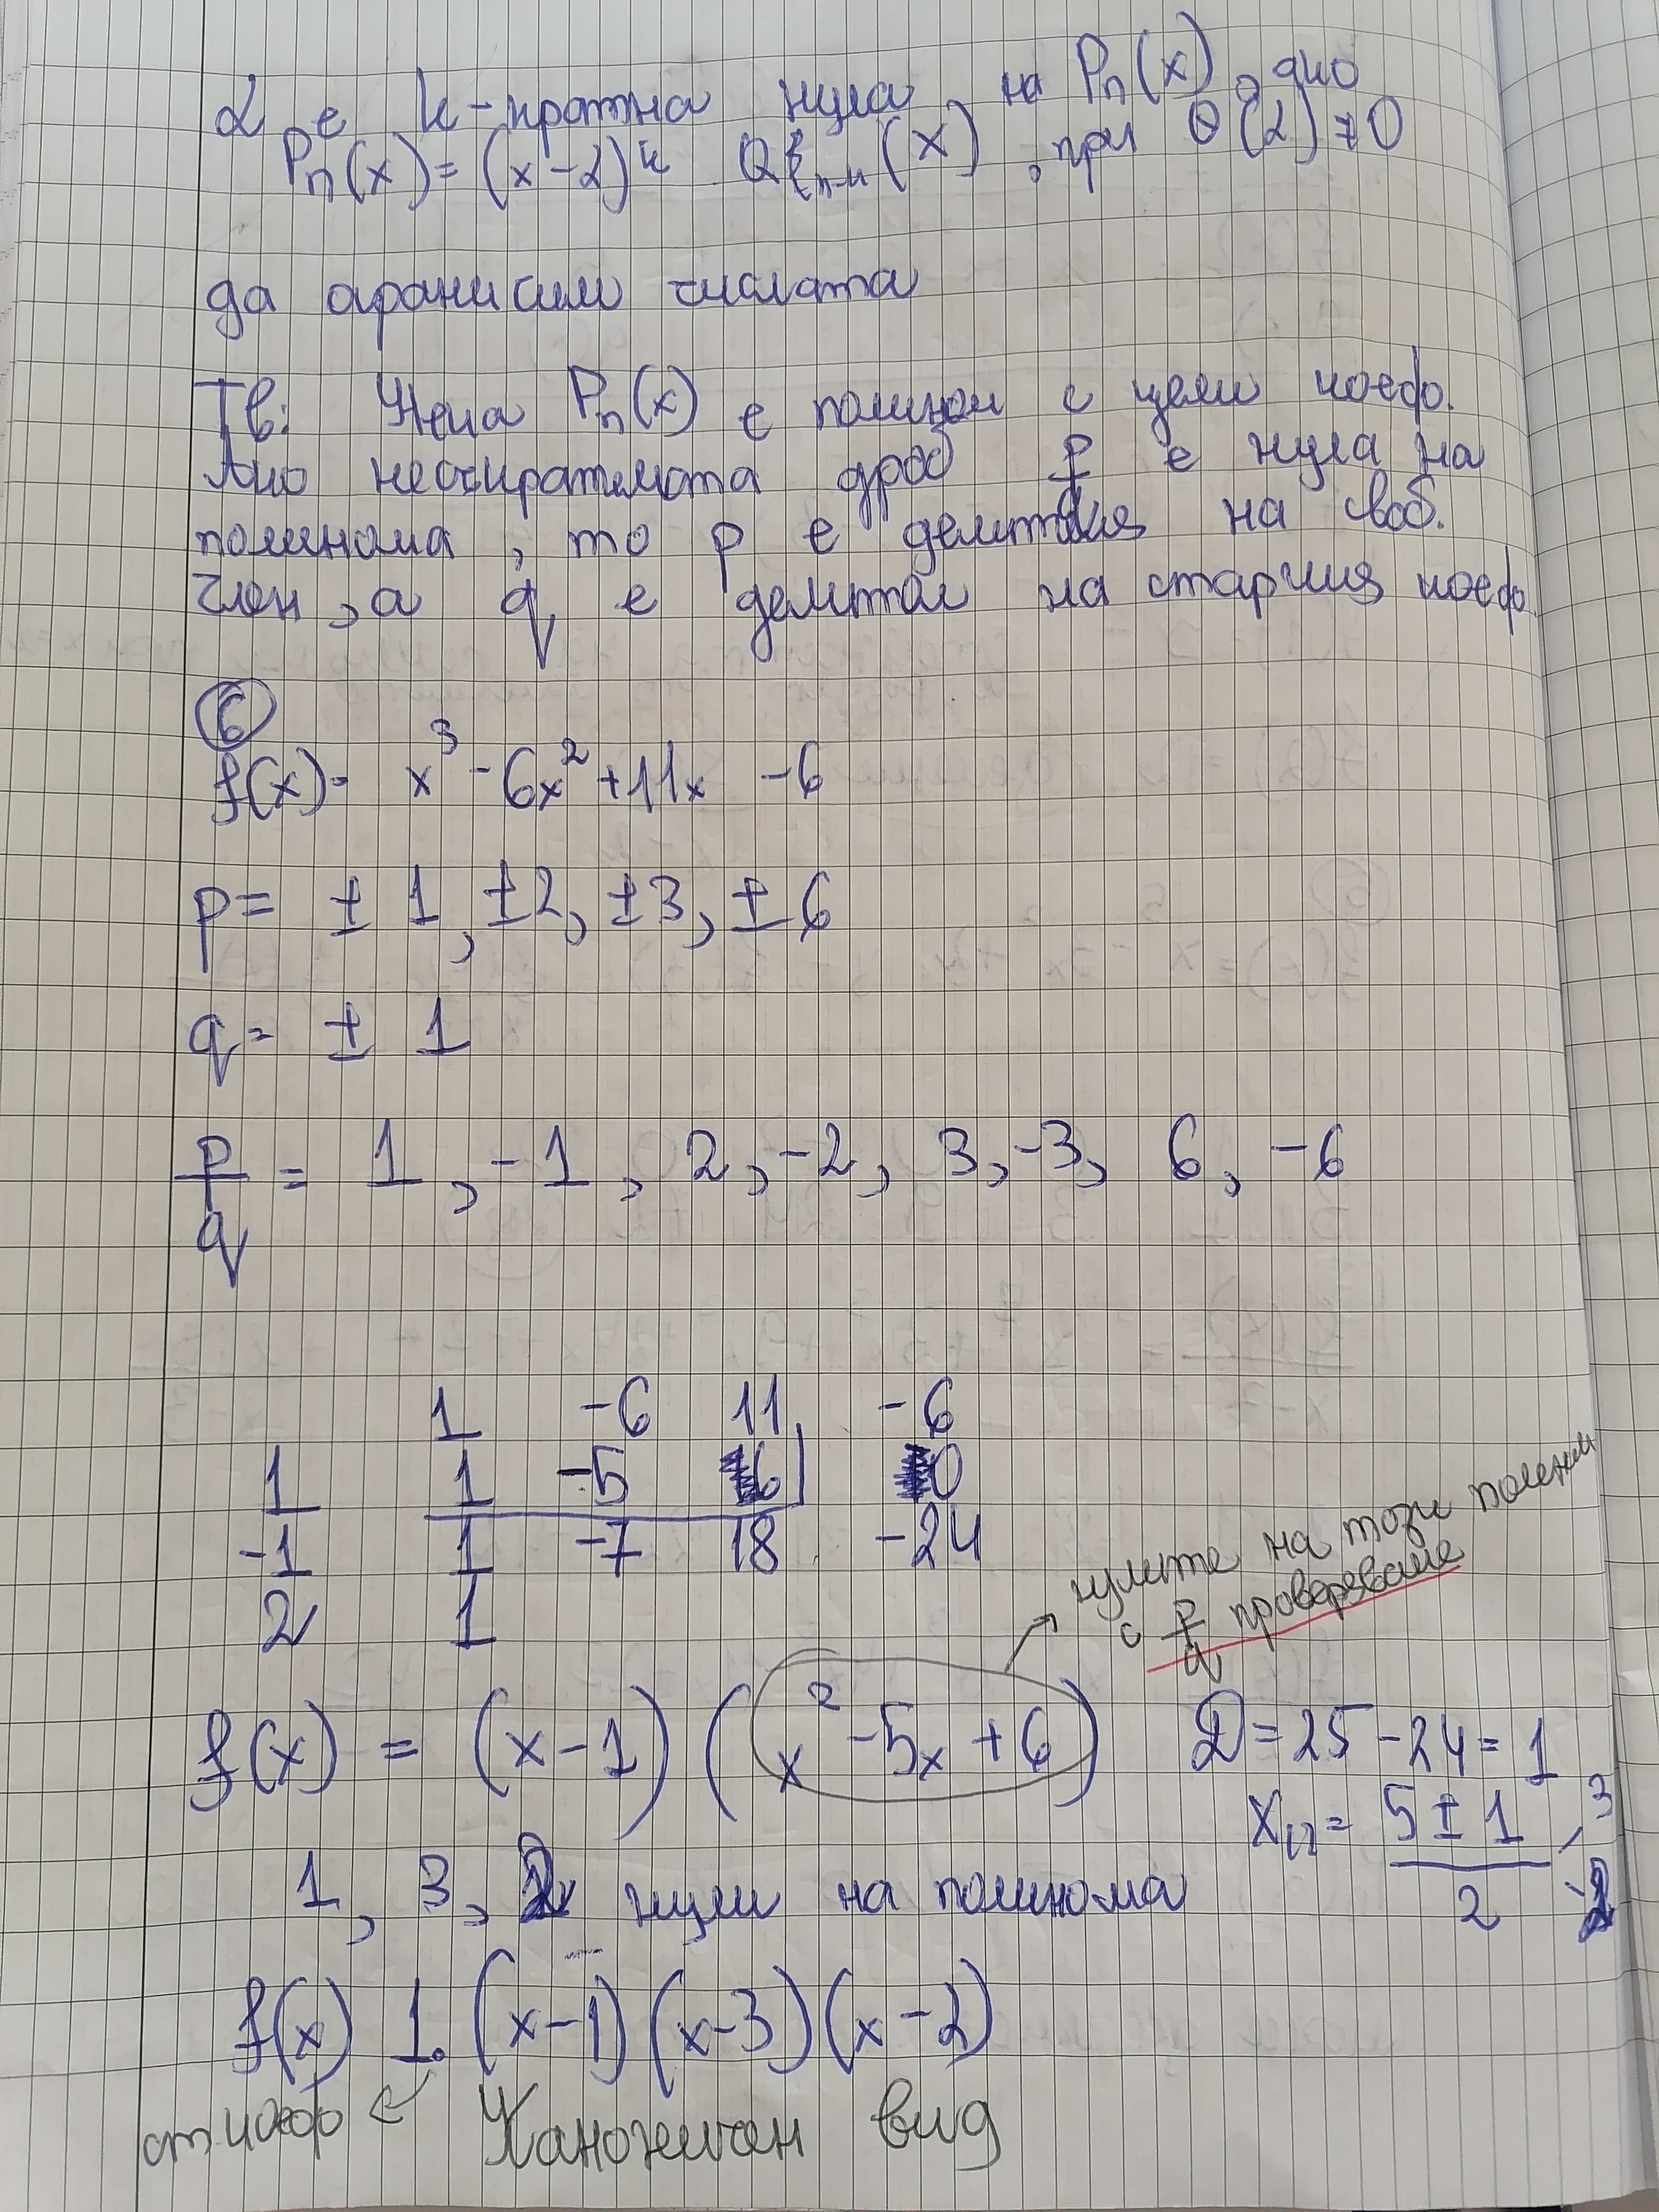 α е k-кратна нула на Pₙ(x), ако
Pₙ(x) = (x-α)ᵏ Qₙ₋ₖ(x), при Q(α) ≠ 0
да ограничим числата
Тв: Нека Pₙ(x) е полином с цели коеф.
Ако несъкратимата дроб p/q е нула на
полинома, то p е делител на своб.
член, а q е делител на старшия коеф.
⑥
f(x) = x³ - 6x² + 11x - 6
p = ± 1, ±2, ±3, ±6
q = ± 1
p/q = 1, -1, 2, -2, 3, -3, 6, -6
1 -6 11 -6
1 1 -5 6 0
-1 1 -7 18 -24
2 1
нулите на този полином
с p/q проверяваме
f(x) = (x-1)(x² - 5x + 6) D = 25 - 24 = 1
x₁,₂ = (5 ± 1)/2 3
2
1, 3, 2 нули на полинома
f(x) 1.(x-1)(x-3)(x-2)
ст коеф ← Каноничен вид